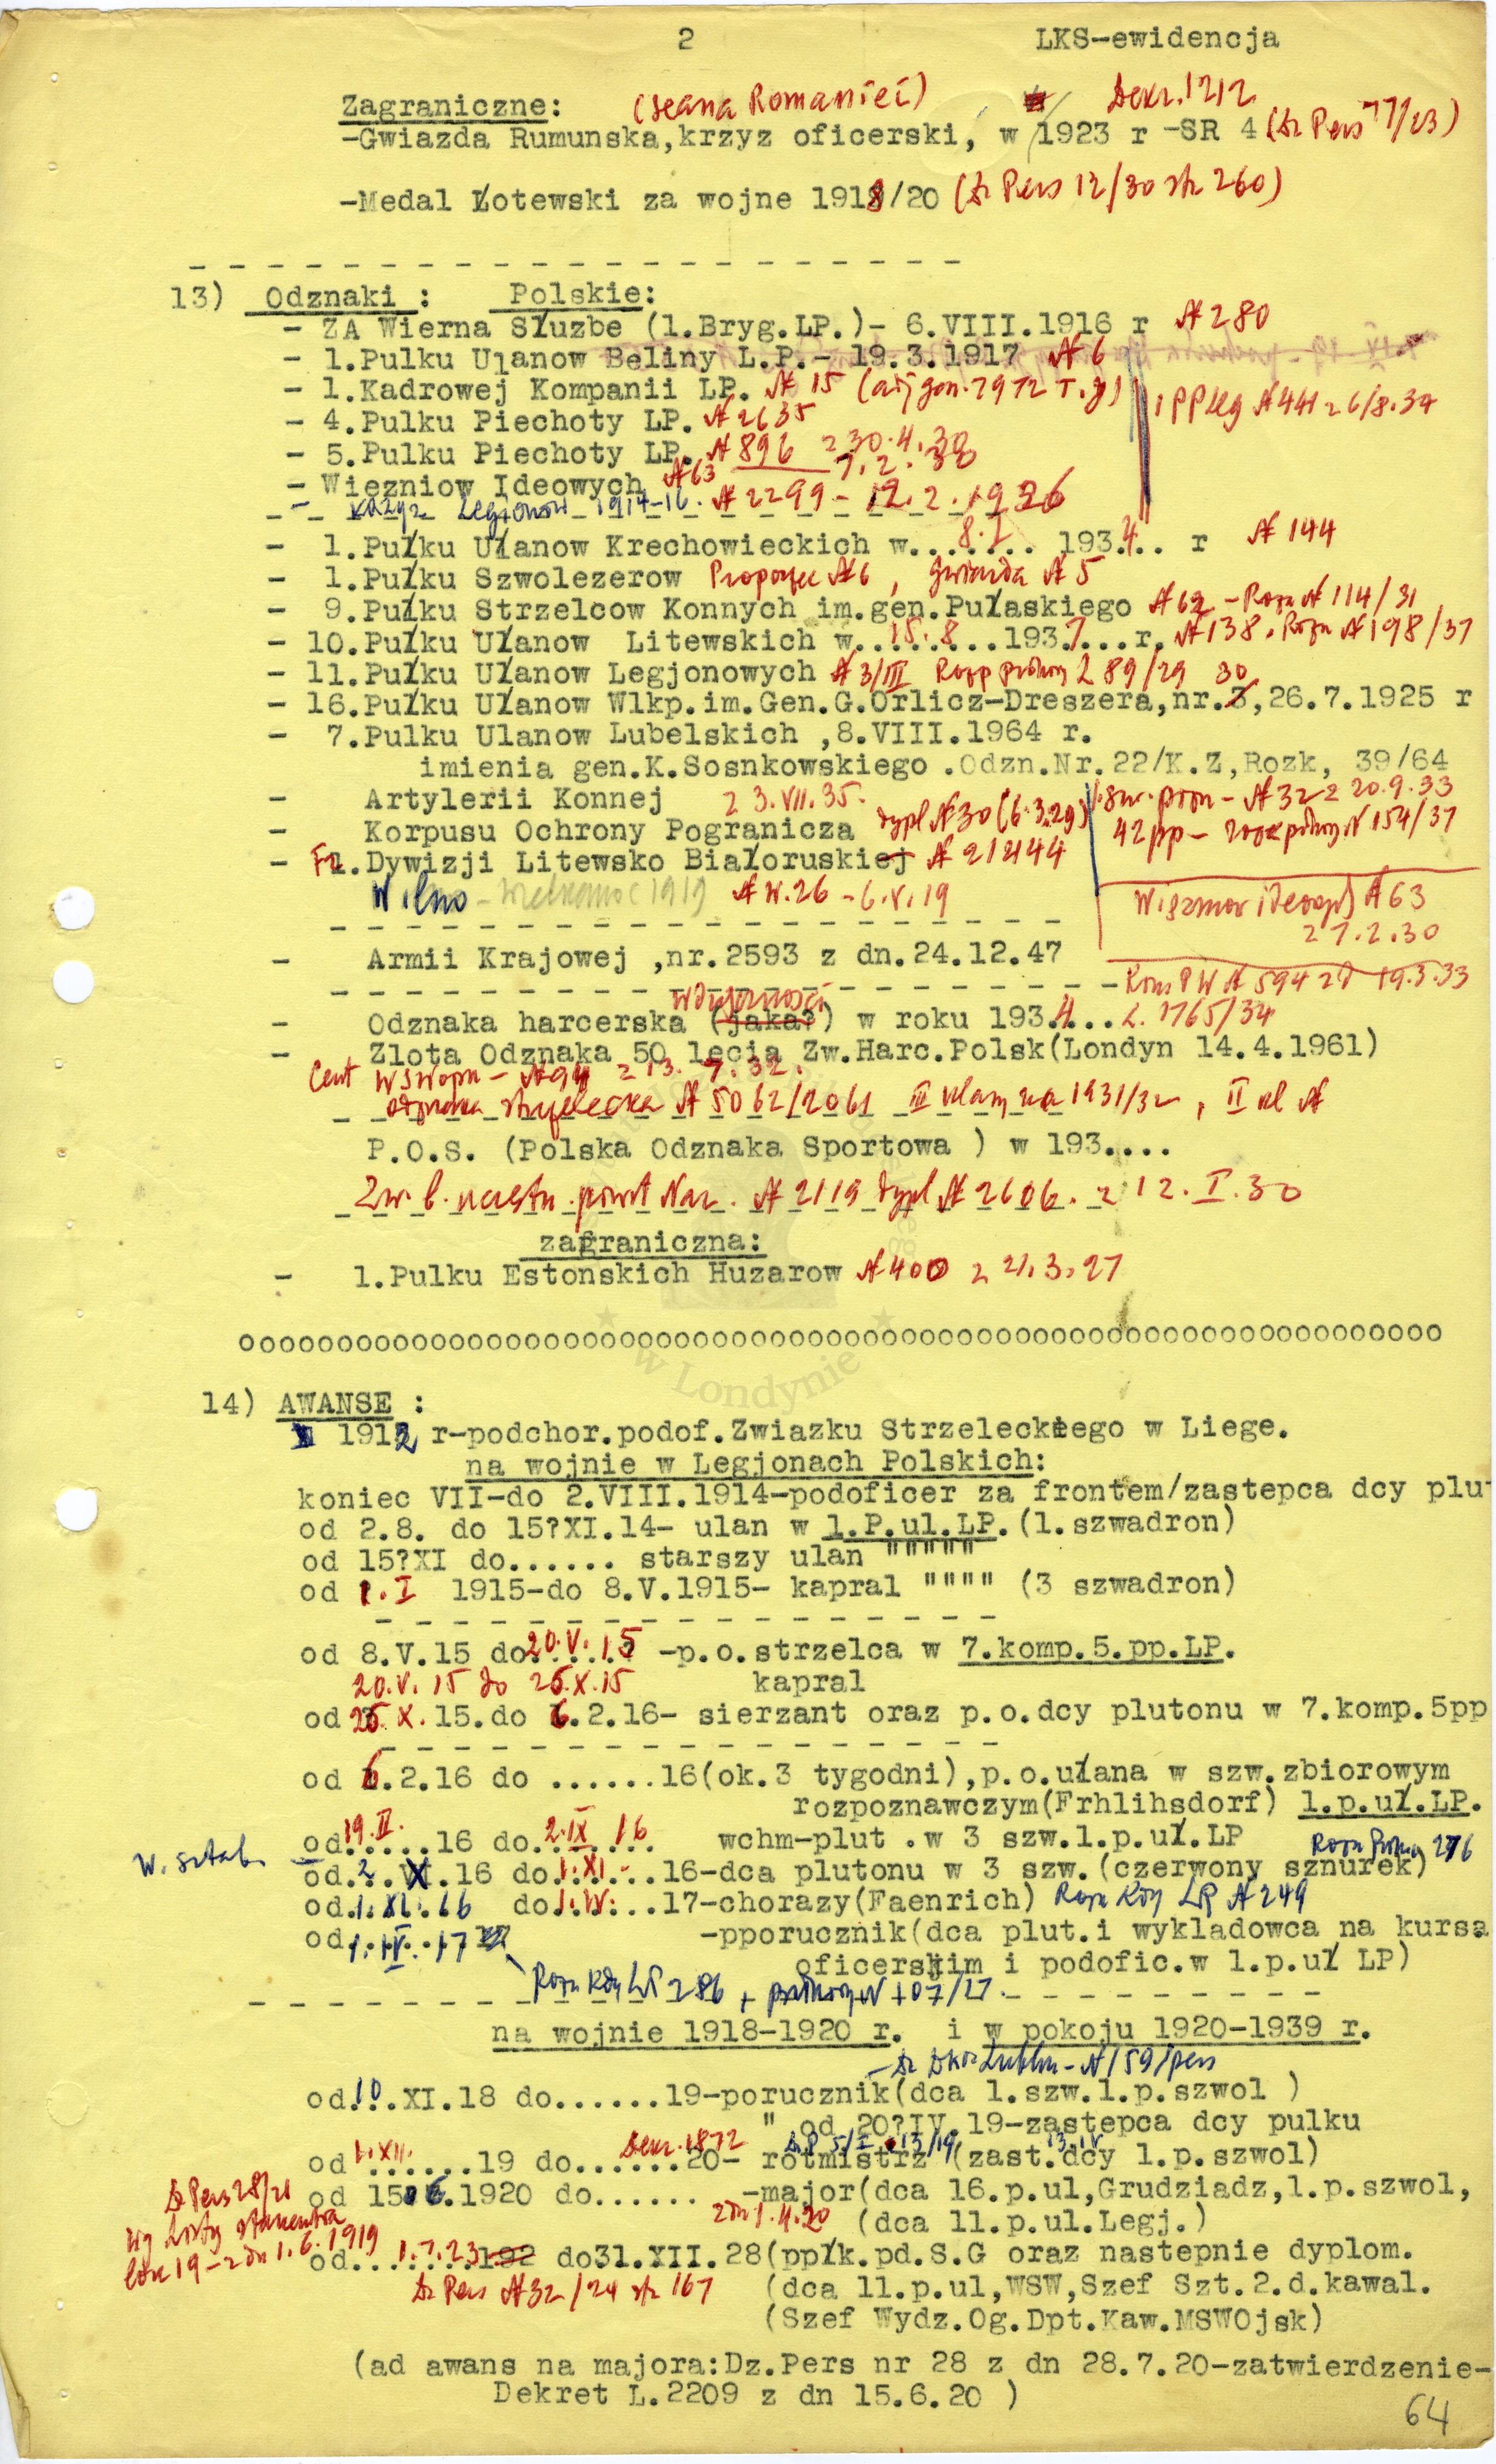 2 LKS-ewidencja
Zagraniczne: (Steana Romaniei) Dekr. 1212
-Gwiazda Rumunska,krzyz oficerski, w 1923 r -SR 4 (Dz Pers 77/23)
-Medal Łotewski za wojne 1918/20 (Dz Pers 12/30 str 260)
13) Odznaki : Polskie:
- ZA Wierna Służbe (1.Bryg.LP.)- 6.VIII.1916 r № 280
- 1.Pulku Ulanow Beliny L.P.- 19.3.1917 № 6
- 1.Kadrowej Kompanii LP. № 15
1 pp Leg № 441 z 6/8.34
- 4.Pulku Piechoty LP. № 2635
- 5.Pulku Piechoty LP. № 896 z 30.4.30
- Wiezniow Ideowych № 63 7.2.30
- Krzyz Legionow 1914-16. № 2299 - 12.2.1926
- 1.Pułku Ułanow Krechowieckich w..8.I.... 1934.. r № 144
- 1.Pułku Szwolezerow Proporzec № 6, Gwiazda № 5
- 9.Pułku Strzelcow Konnych im.gen.Pułaskiego № 62 - Rozk № 114/31
- 10.Pułku Ułanow Litewskich w..18.8...1937...r. № 138. Rozk № 198/37
- 11.Pułku Ułanow Legjonowych № 3/III 89/29 30
- 16.Pułku Ułanow Wlkp.im.Gen.G.Orlicz-Dreszera,nr.3,26.7.1925 r
- 7.Pulku Ulanow Lubelskich ,8.VIII.1964 r.
imienia gen.K.Sosnkowskiego .Odzn.Nr.22/K.Z,Rozk, 39/64
- Artylerii Konnej z 3.VII.35.
№ 32 z 20.9.33
- Korpusu Ochrony Pogranicza dypl № 30 (6.3.29)
42 pp - № 154/37
- Fr.Dywizji Litewsko Białoruskiej № 2144
Wilno - Wielkanoc 1919 № W.26 - 6.V.19
№ 63
z 7.2.30
- Armii Krajowej ,nr.2593 z dn.24.12.47
№ 594 19.3.33
- Odznaka harcerska (jaka?) wdziecznosci w roku 1934... L. 1765/34
- Zlota Odznaka 50 lecia Zw.Harc.Polsk(Londyn 14.4.1961)
Cent W Szkopn - № 94 z 13.7.32.
odznaka strzelecka № 5062/2061 III klasy za 1931/32, II kl №
P.O.S. (Polska Odznaka Sportowa ) w 193....
Zw. b. uczestn. powst Nar. № 2119 dypl № 2606. z 12.I.30
zagraniczna:
- 1.Pulku Estonskich Huzarow № 400 z 21.3.27
oooooooooooooooooooooooooooooooooooooooooooooooooooooooooo
14) AWANSE :
1912 r-podchor.podof.Zwiazku Strzeleckiego w Liege.
na wojnie w Legjonach Polskich:
koniec VII-do 2.VIII.1914-podoficer za frontem/zastepca dcy plut
od 2.8. do 15?XI.14- ulan w 1.P.ul.LP.(1.szwadron)
od 15?XI do...... starszy ulan """""
od 1.I 1915-do 8.V.1915- kapral """" (3 szwadron)
od 8.V.15 do 20.V.15 -p.o.strzelca w 7.komp.5.pp.LP.
20.V.15 do 26.X.15 kapral
od 26.X.15.do 6.2.16- sierzant oraz p.o.dcy plutonu w 7.komp.5pp
od 6.2.16 do ......16(ok.3 tygodni),p.o.ułana w szw.zbiorowym
rozpoznawczym(Frhlihsdorf) 1.p.uł.LP.
od 19.II.16 do 2.IX 16 wchm-plut .w 3 szw.1.p.uł.LP
W. sztab. od.2..IX.16 do 1.XI.- 16-dca plutonu w 3 szw.(czerwony sznurek) 276
od.1.XI.16 do 1.IV...17-chorazy(Faenrich) Rozk Kdy LP № 249
od 1.IV.17 -pporucznik(dca plut.i wykladowca na kursa
oficerskim i podofic.w 1.p.uł LP)
Rozk Kdy LP 286 + 107/17
na wojnie 1918-1920 r. i w pokoju 1920-1939 r.
- Dz Lublin - № 159/pers
od 10.XI.18 do......19-porucznik(dca 1.szw.1.p.szwol )
" od 20?IV.19-zastepca dcy pulku
Dekr. 1872
od 1.XII.....19 do......20- rotmistrz (zast.dcy 1.p.szwol)
Dz Pers 28/21
od 15.6.1920 do...... -major(dca 16.p.ul,Grudziadz,1.p.szwol,
z dn 1.4.20 (dca 11.p.ul.Legj.)
z dn 1.6.1919
od....1.7.23 192 do31.XII.28(ppłk.pd.S.G oraz nastepnie dyplom.
Dz Pers № 32/24 str 167 (dca 11.p.ul,WSW,Szef Szt.2.d.kawal.
(Szef Wydz.Og.Dpt.Kaw.MSWOjsk)
(ad awans na majora:Dz.Pers nr 28 z dn 28.7.20-zatwierdzenie-
Dekret L.2209 z dn 15.6.20 )
64
w Londynie